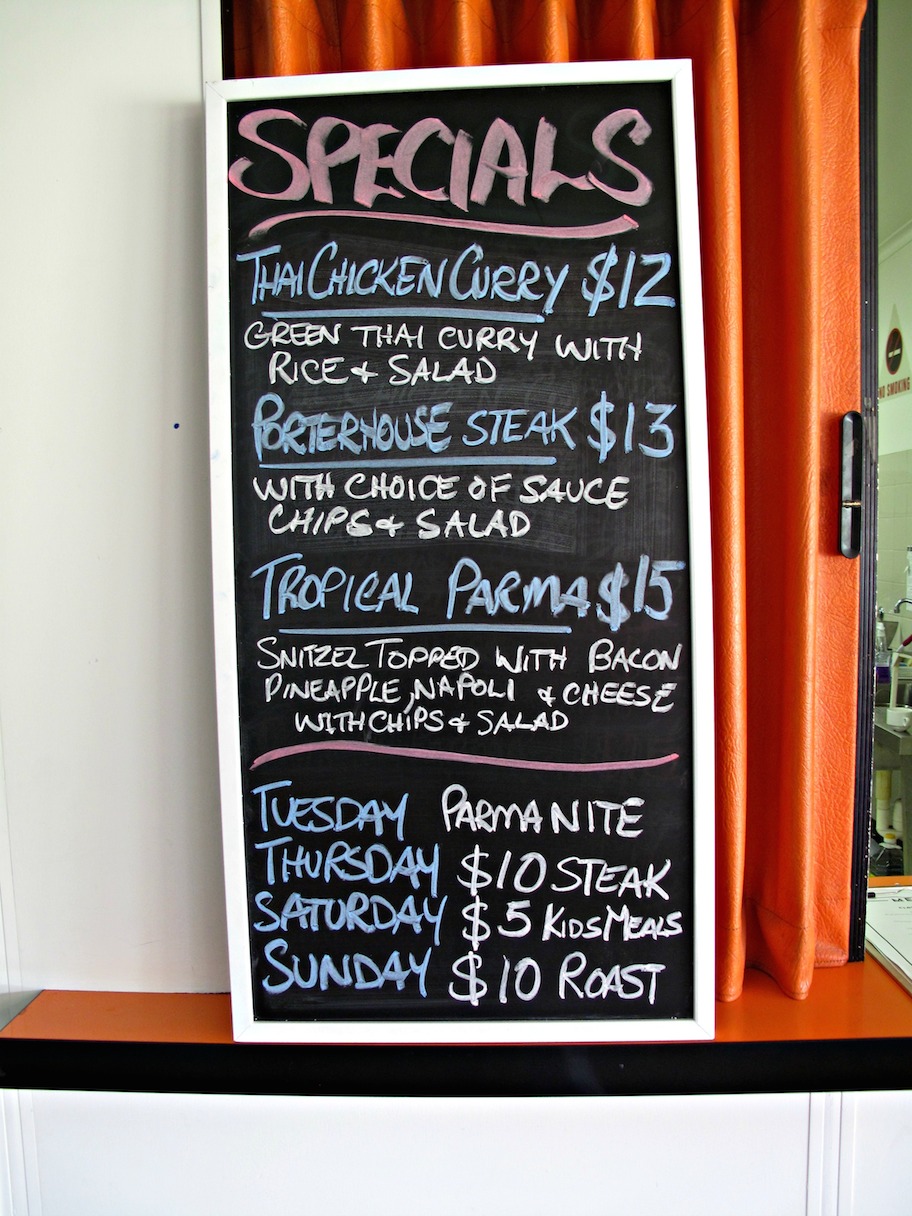 SPECIALS
THAI CHICKEN CURRY $12
GREEN THAI CURRY WITH
RICE & SALAD
PORTERHOUSE STEAK $13
WITH CHOICE OF SAUCE
CHIPS & SALAD
TROPICAL PARMA $15
SNITZEL TOPPED WITH BACON
PINEAPPLE, NAPOLI & CHEESE
WITH CHIPS & SALAD
TUESDAY PARMA NITE
THURSDAY $10 STEAK
SATURDAY $5 KIDS MEALS
SUNDAY $10 ROAST
NO SMOKING